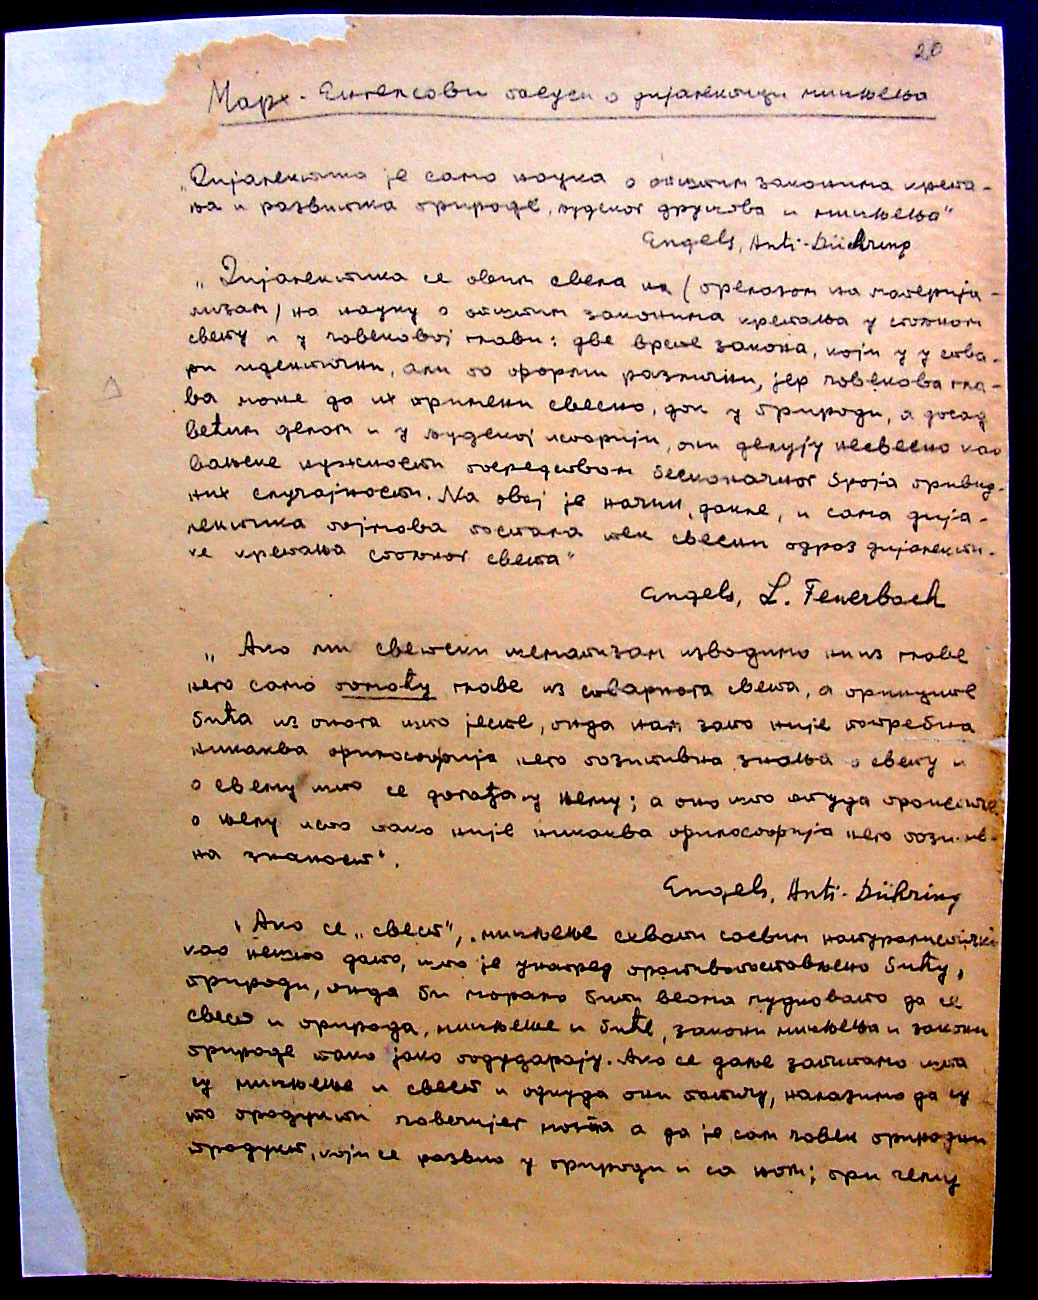 20
Маркс-Енгелсови погледи о дијалектици мишљења
„Дијалектика је само наука о општим законима крета-
ња и развитка природе, људског друштва и мишљења"
Engels, Anti-Dühring
„Дијалектика се овим свела на (прелазом на материја-
лизам) на науку о општим законима кретања у спољном
свету и у човековој глави: две врсте закона, који су у ства-
ри идентични, али по форми различни, јер човекова гла-
ва може да их примени свесно, док у природи, а досад
већим делом и у људској историји, они делују несвесно као
вањске нужности посредством бесконачног броја привид-
них случајности. На овај је начин, дакле, и сама дија-
лектика појмова постала тек свесни одраз дијалекти-
ке кретања спољног света"
Engels, L. Feuerbach
„Ако ми светски шематизам изводимо не из главе
него само помоћу главе из стварнога света, а принципе
бића из онога што јесте, онда нам зато није потребна
никаква филозофија него позитивна знања о свету и
о свему што се догађа у њему; а оно што отуда произиђе
о њему исто тако није никаква филозофија него позитив-
на знаност".
Engels, Anti-Dühring
„Ако се „свест", „мишљење схвати сасвим натуралистички
као нешто дато, што је унапред противпостављено бићу,
природи, онда би морало бити веома чудновато да се
свест и природа, мишљење и биће, закони мишљења и закони
природе тако јако подударају. Ако се даље запитамо шта
су мишљење и свест и одкуда они потичу, налазимо да су
то продукти човечијег мозга а да је сам човек природни
продукт, који се развио у природи и са њом; при чему